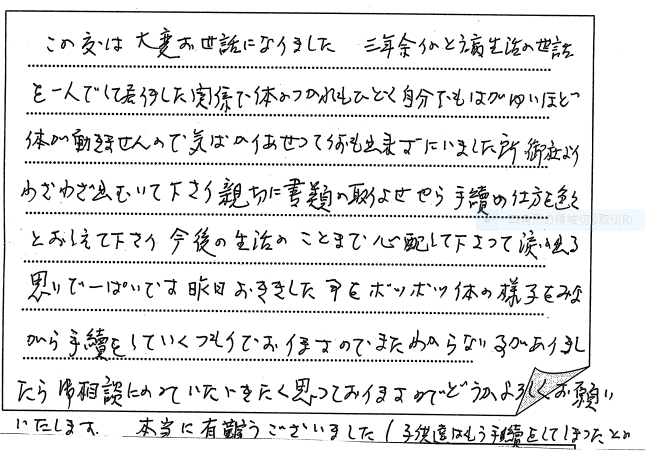 この度は大変お世話になりました 三年余りのとう病生活の世話
を一人でして居りました関係で体のつかれもひどく自分でもはがゆいほど
体が動きませんので気ばかりあせって何も出来ずにいました所御社より
わざわざ出むいて下さり親切に書類の取りよせやら手續の仕方を色々
とおしえて下さり今後の生活のことまで心配して下さって涙の出る
思いで一ぱいです昨日おききした事をボツボツ体の様子をみな
がら手續をしていくつもりでおりますのでまたわからない事がありまし
たら御相談にのっていただきたく思っておりますのでどうかよろしくお願い
いたします。 本当に有難うございました (子供達はもう手續をしてしまったとの